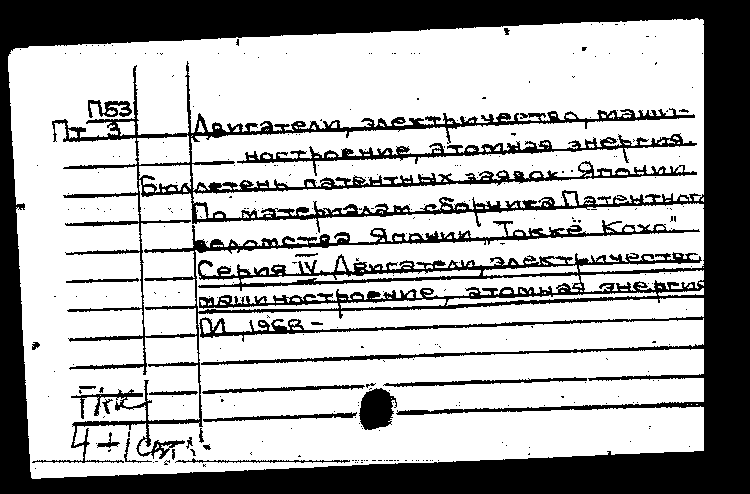 П53
Пт 3
Двигатели, электричество, маши-
ностроение, атомная энергия.
Бюллетень патентных заявок Японии.
По материалам сборника Патентного
ведомства Японии „Токкё Кохо".
Серия IV. Двигатели, электричество
машиностроение, атомная энергия
М 1968 -
ГКК
4+1